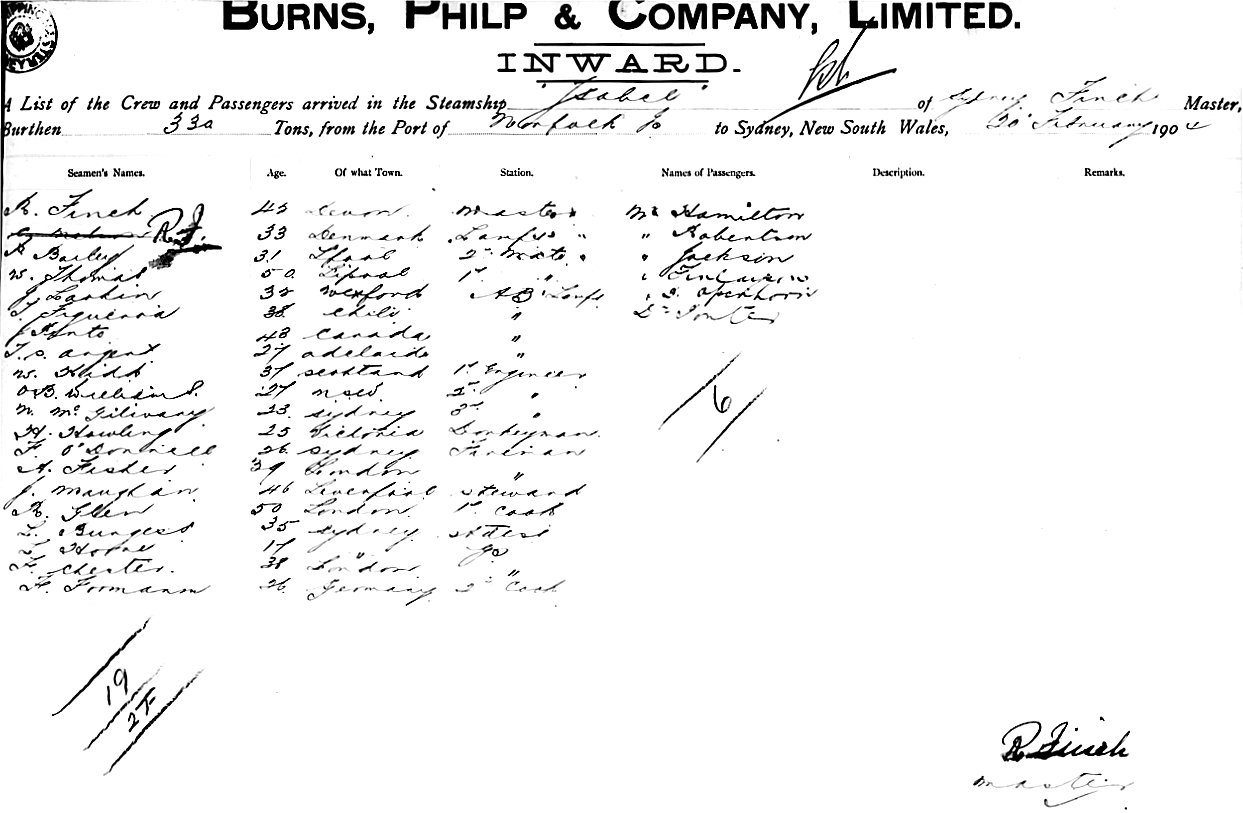 BURNS, PHILP & COMPANY, LIMITED.
INWARD.
A List of the Crew and Passengers arrived in the Steamship "Isabel" of Sydney Finch Master,
Burthen 330 Tons, from the Port of Norfolk Is to Sydney, New South Wales, 20 February 1904
Seamen's Names. Age. Of what Town. Station. Names of Passengers. Description. Remarks.
R. Finch 42 Devon. Master Mr Hamilton
R.F. 33 Denmark " " Robertson
A Bailey 31 L'pool 2nd Mate " Jackson
W. Thomas 50 L'pool 1st "
J. Larkin 32 Wexford AB & Lamps
T. Figueroa 38 Chili " Dr
J 43 Canada "
T. S. Argent 27 Adelaide "
W. Kidd 37 Scotland 1st Engineer
O.B. Williams. 27 NSW. 2nd "
N. McGilivary 23. Sydney 3rd "
H. Howling 25 Victoria Donkeyman.
F. O'Donnell 26 Sydney Fireman
A. Fisher 39 London "
J. Maughan 46 Liverpool Steward
R. Glen 50 London 1st Cook
L. Burgess 35 Sydney
T Horne 17 "
F. Chester. 38 London "
F. Formanon 26 Germany 2nd Cook
6
19
25
R Finch
Master